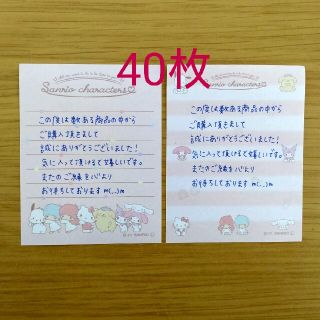 40枚
Sanrio characters
この度は数ある商品の中から
ご購入頂きまして
誠にありがとうございました!
気に入って頂けると嬉しいです。
またのご縁を心より
お待ちしております m(..)m
Sanrio characters
この度は数ある商品の中から
ご購入頂きまして
誠にありがとうございました!
気に入って頂けると嬉しいです。
またのご縁を心より
お待ちしております m(..)m